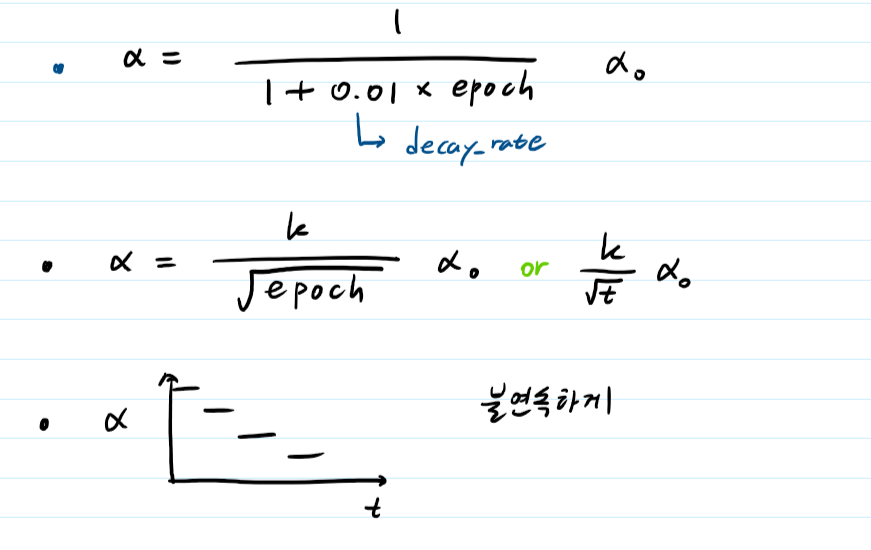 • α = 1 / (1 + 0.01 × epoch) α₀
↳ decay_rate
• α = k / √epoch α₀ or k / √t α₀
• α 불연속하게
t